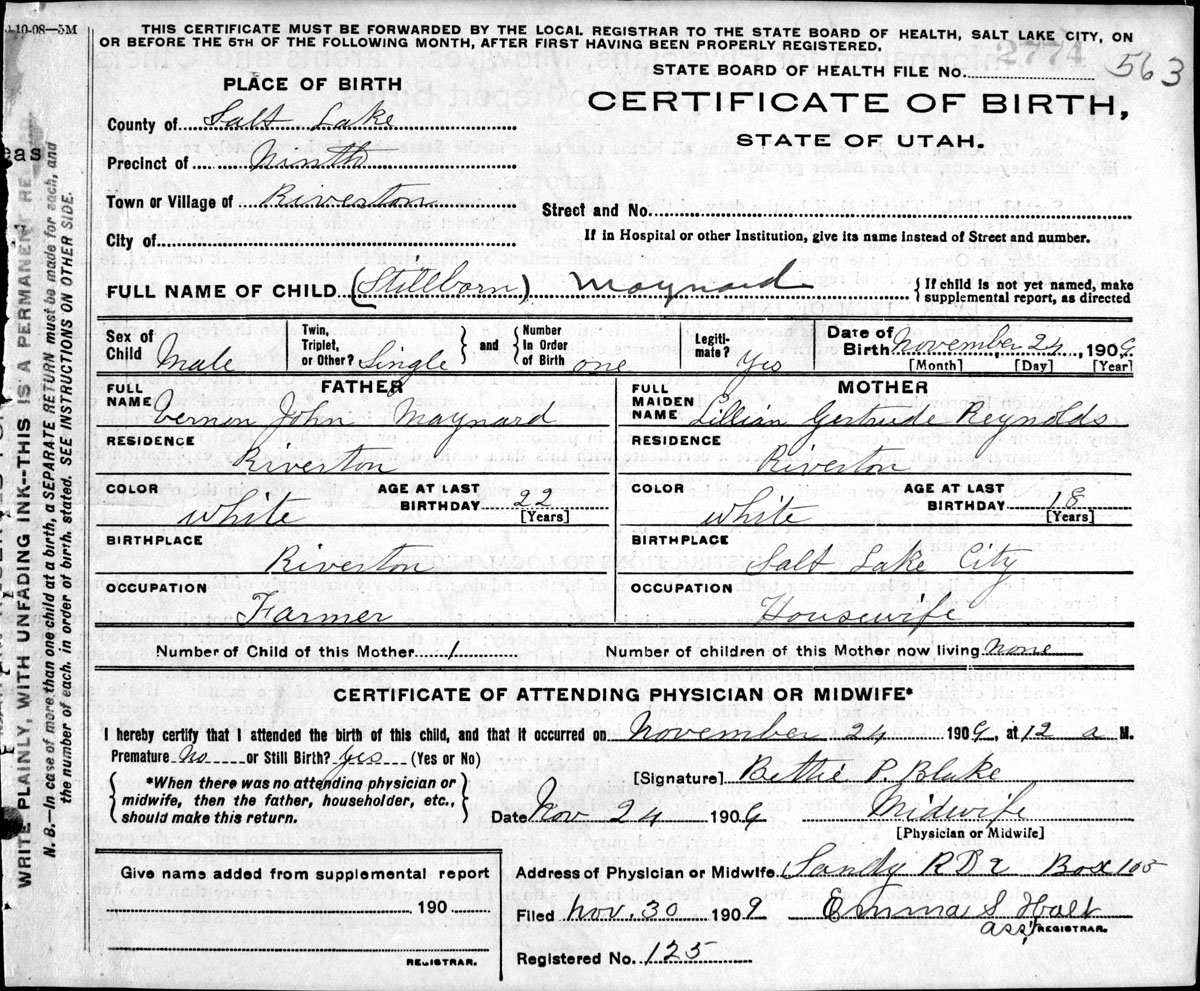 9-10-08—5M
THIS CERTIFICATE MUST BE FORWARDED BY THE LOCAL REGISTRAR TO THE STATE BOARD OF HEALTH, SALT LAKE CITY, ON
OR BEFORE THE 5TH OF THE FOLLOWING MONTH, AFTER FIRST HAVING BEEN PROPERLY REGISTERED.
STATE BOARD OF HEALTH FILE No. 2774 563
PLACE OF BIRTH
CERTIFICATE OF BIRTH,
STATE OF UTAH.
County of Salt Lake
Precinct of Ninth
Town or Village of Riverton
Street and No.
City of
If in Hospital or other Institution, give its name instead of Street and number.
FULL NAME OF CHILD (Stillborn) Maynard
If child is not yet named, make
supplemental report, as directed
Sex of Child Male
Twin, Triplet, or Other? Single and Number In Order of Birth one
Legiti- mate? Yes
Date of Birth November, 24, 1909
[Month] [Day] [Year]
FATHER
FULL NAME Vernon John Maynard
RESIDENCE
Riverton
COLOR White AGE AT LAST BIRTHDAY 22
[Years]
BIRTHPLACE
Riverton
OCCUPATION
Farmer
MOTHER
FULL MAIDEN NAME Lillian Gertrude Reynolds
RESIDENCE
Riverton
COLOR White AGE AT LAST BIRTHDAY 18
[Years]
BIRTHPLACE
Salt Lake City
OCCUPATION
Housewife
Number of Child of this Mother 1 Number of children of this Mother now living none
CERTIFICATE OF ATTENDING PHYSICIAN OR MIDWIFE*
I hereby certify that I attended the birth of this child, and that it occurred on November 24 1909, at 12 a M.
Premature No or Still Birth? yes (Yes or No)
*When there was no attending physician or
midwife, then the father, householder, etc.,
should make this return.
[Signature] Bettie P. Blake
Date Nov 24 1909 Midwife
[Physician or Midwife]
Give name added from supplemental report
190
REGISTRAR.
Address of Physician or Midwife Sandy R D 2 Box 105
Filed Nov. 30 1909 Emma S Holt
ass, REGISTRAR.
Registered No. 125
WRITE PLAINLY, WITH UNFADING INK--THIS IS A PERMANENT RE
N. B.—In case of more than one child at a birth, a SEPARATE RETURN must be made for each, and
the number of each, in order of birth, stated. SEE INSTRUCTIONS ON OTHER SIDE.